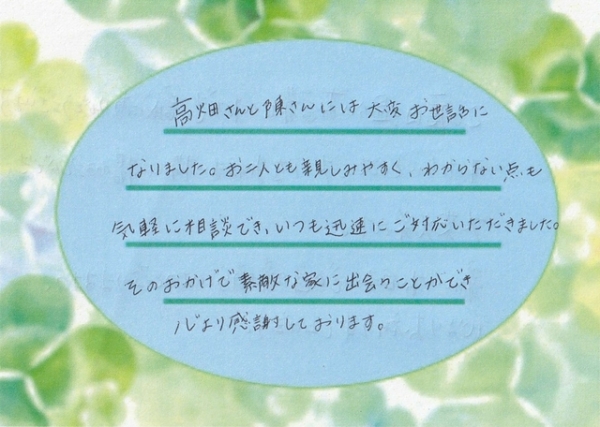 高畑さんと陳さんには大変お世話に
なりました。お二人とも親しみやすく、わからない点も
気軽に相談でき、いつも迅速にご対応いただきました。
そのおかげで素敵な家に出会うことができ
心より感謝しております。